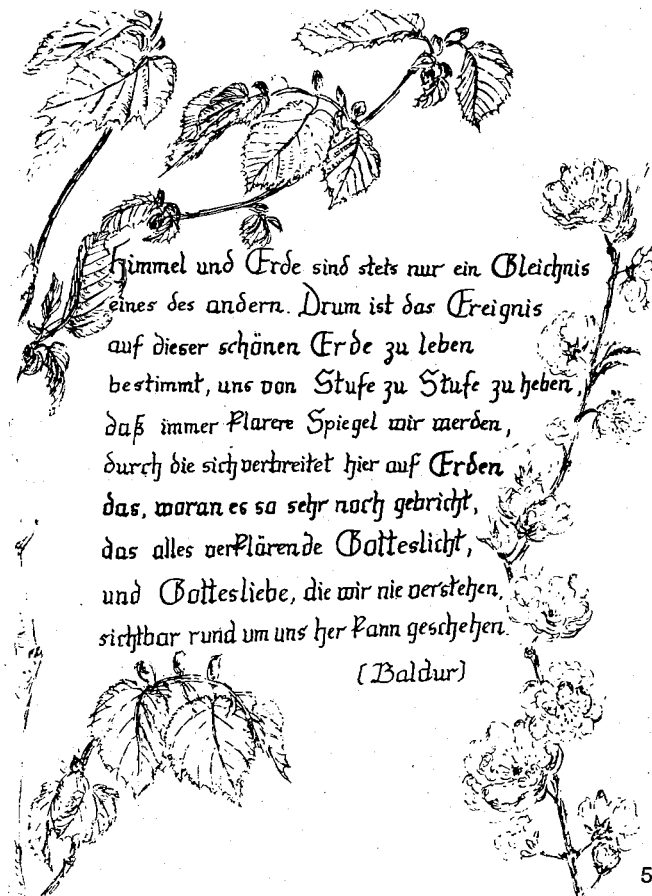 Himmel und Erde sind stets nur ein Gleichnis
eines des andern. Drum ist das Ereignis
auf dieser schönen Erde zu leben
bestimmt, uns von Stufe zu Stufe zu heben,
daß immer klarere Spiegel wir werden,
durch die sich verbreitet hier auf Erden
das, woran es so sehr noch gebricht,
das alles verklärende Gotteslicht,
und Gottesliebe, die wir nie verstehen,
sichtbar rund um uns her kann geschehen.
(Baldur)
5